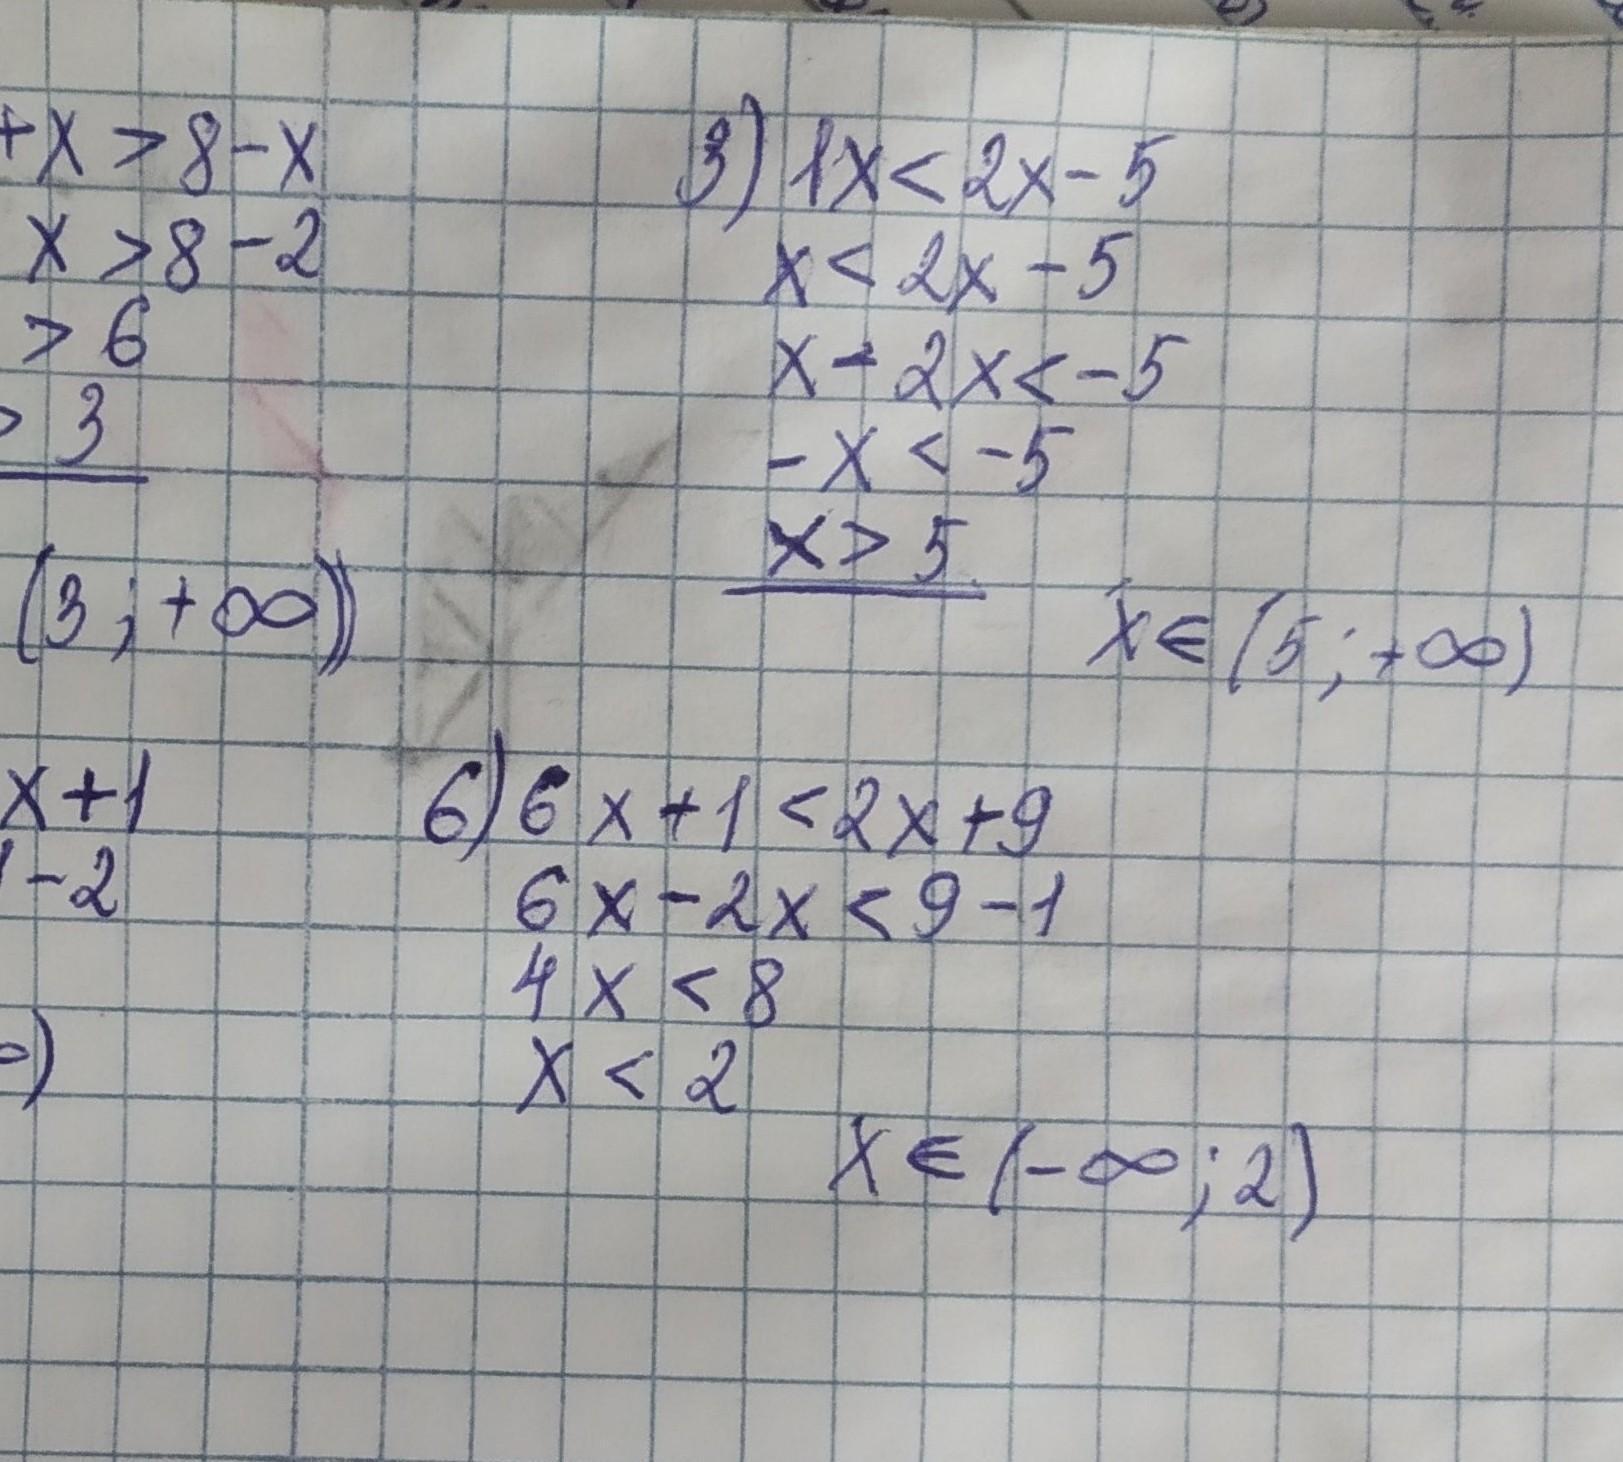 +x > 8 - x
x > 8 - 2
> 6
> 3
(3 ; +∞))
x + 1
- 2
)
3) 1x < 2x - 5
x < 2x - 5
x - 2x < -5
-x < -5
x > 5
x ∈ (5 ; +∞)
6) 6x + 1 < 2x + 9
6x - 2x < 9 - 1
4x < 8
x < 2
x ∈ (-∞ ; 2)